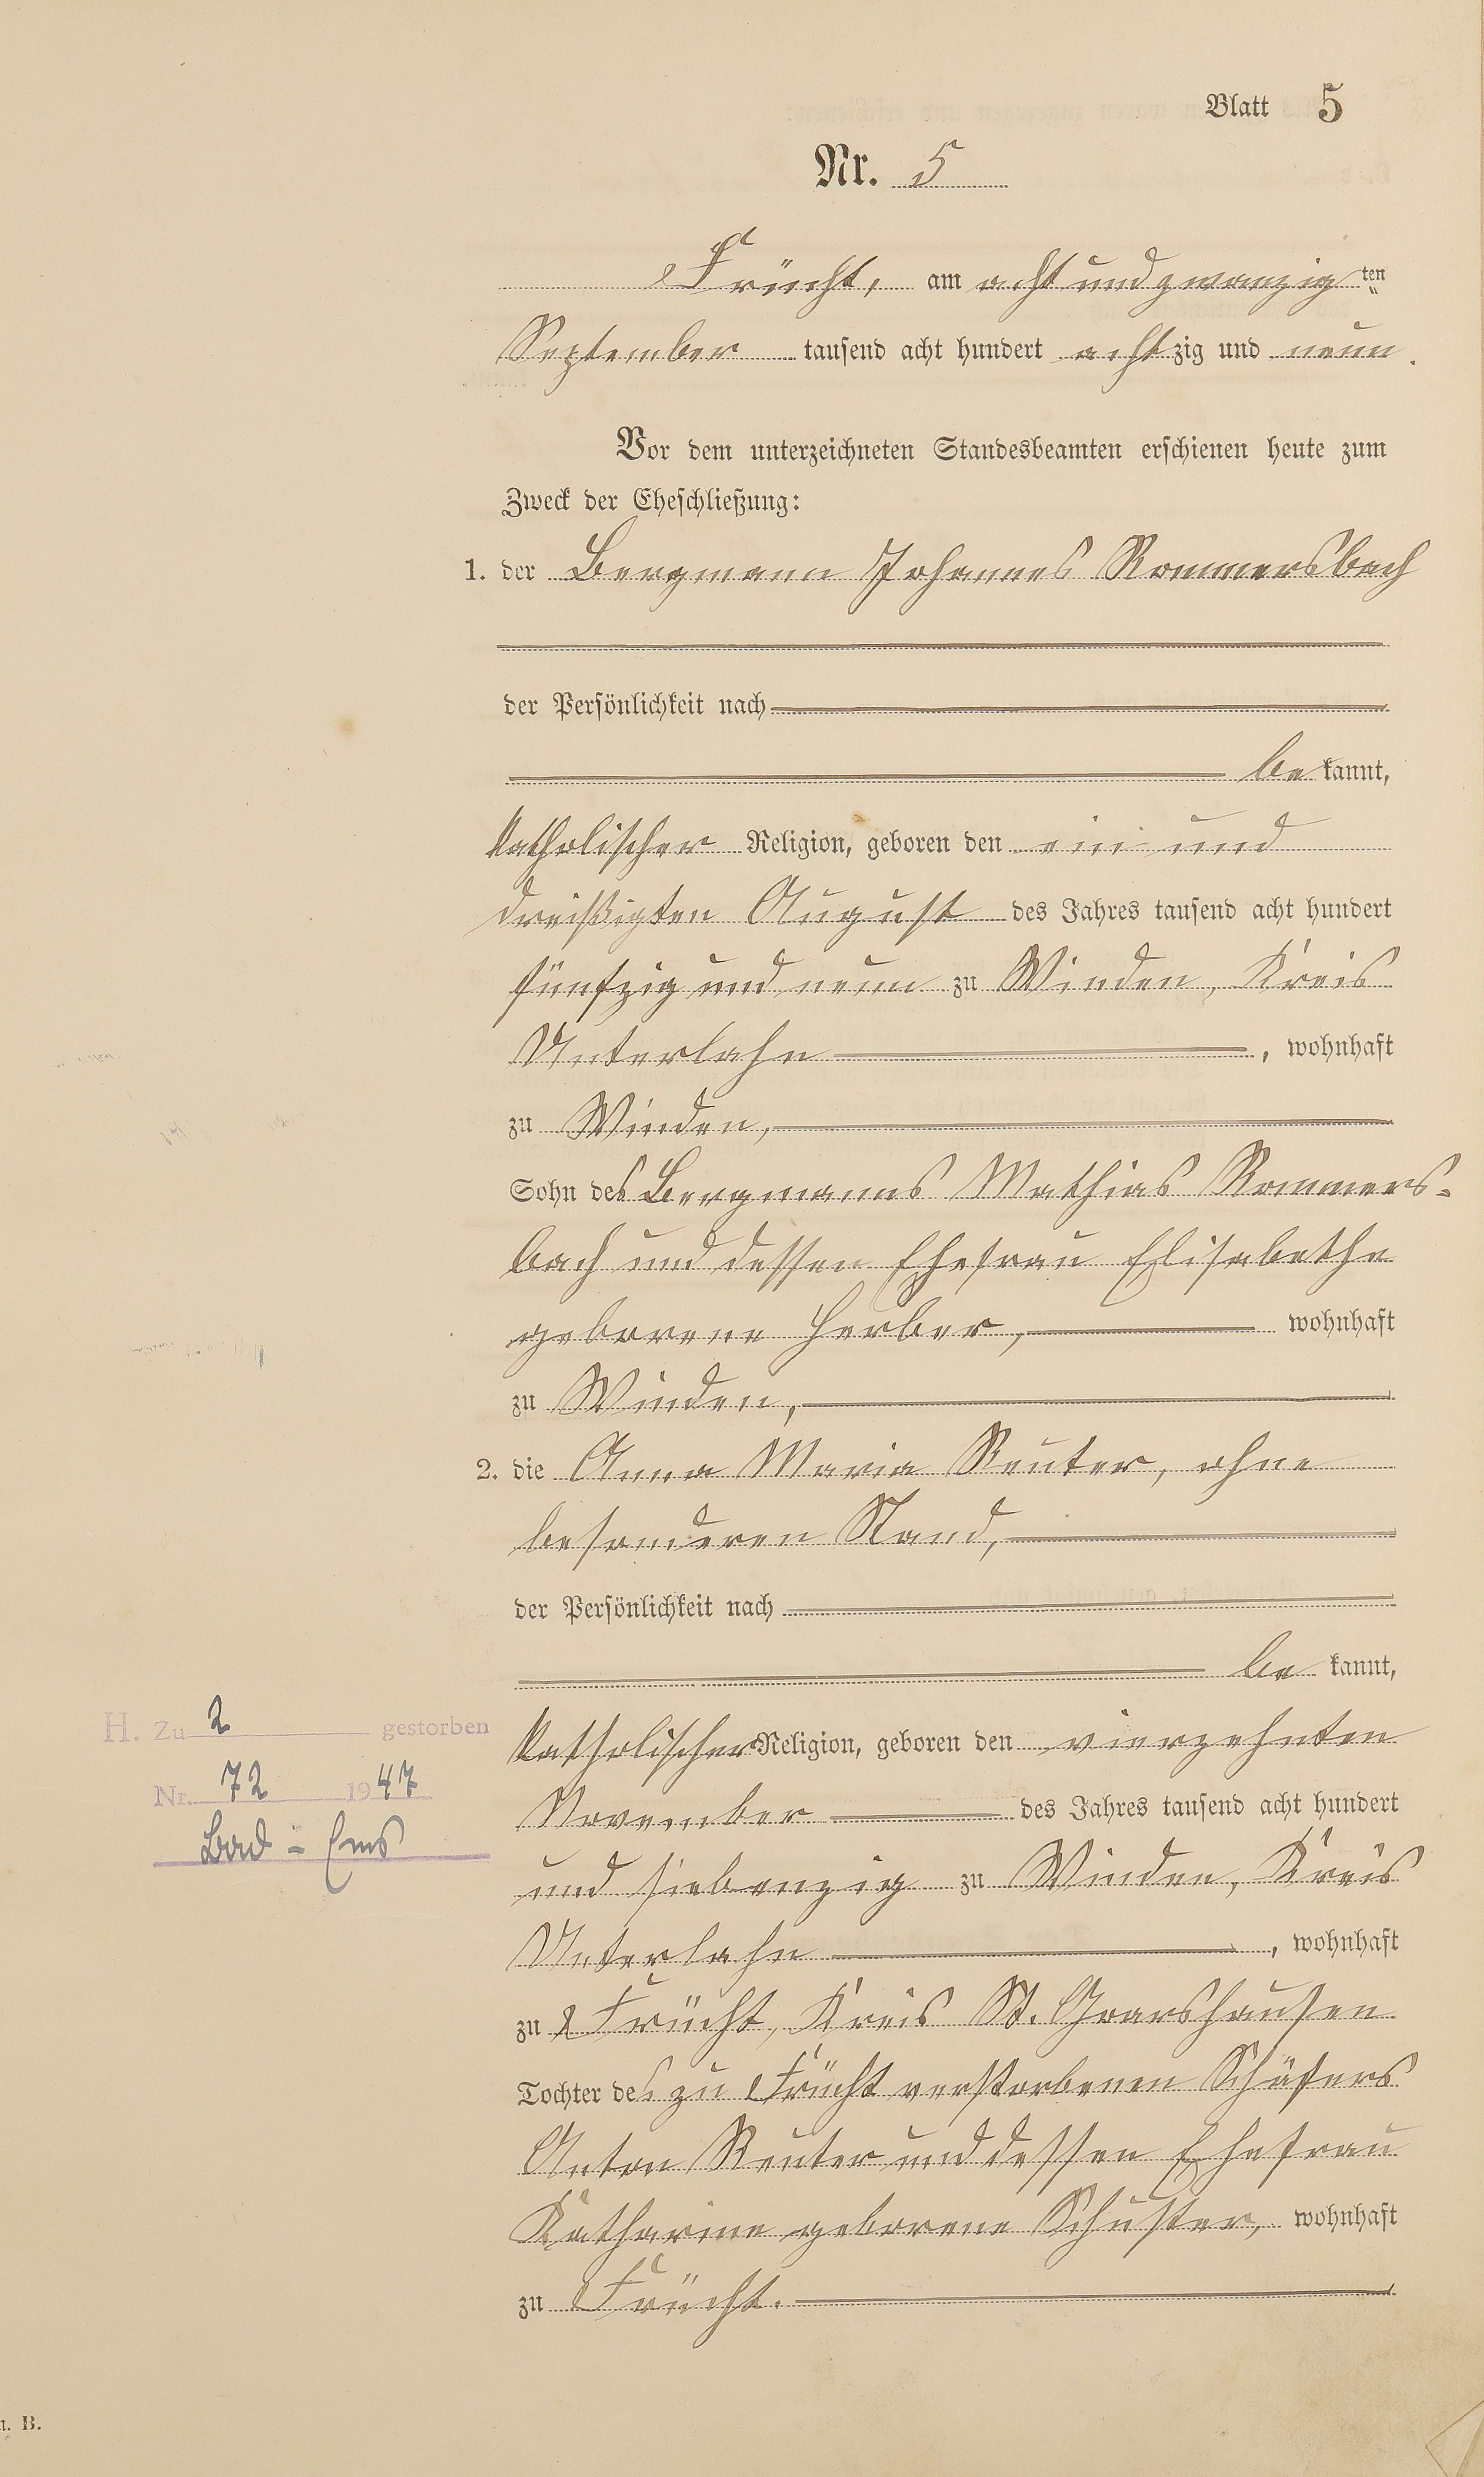 Blatt 5
Nr. 5
Frücht, am acht und zwanzig ten
September tausend acht hundert achtzig und neun.
Vor dem unterzeichneten Standesbeamten erschienen heute zum
Zweck der Eheschließung:
1. der Bergmann Johannes Rommersbach
der Persönlichkeit nach
be kannt,
katholischer Religion, geboren den ein und
dreißigten August des Jahres tausend acht hundert
fünfzig und neun zu Winden, Kreis
Unterlahn, wohnhaft
zu Winden,
Sohn des Bergmanns Mathias Rommers-
bach und dessen Ehefrau Elisabethe
geborene Herber, wohnhaft
zu Winden,
2. die Anna Maria Reuter, ohne
besonderen Stand,
der Persönlichkeit nach
be kannt,
katholischer Religion, geboren den vierzehnten
November des Jahres tausend acht hundert
und siebenzig zu Winden, Kreis
Unterlahn, wohnhaft
zu Frücht, Kreis St. Goarshausen
Tochter des zu Frücht verstorbenen Schäfers
Anton Reuter und dessen Ehefrau
Katharine geborene Schuster, wohnhaft
zu Frücht.
H. Zu 2 gestorben
Nr. 72 1947
Bad-Ems
B.